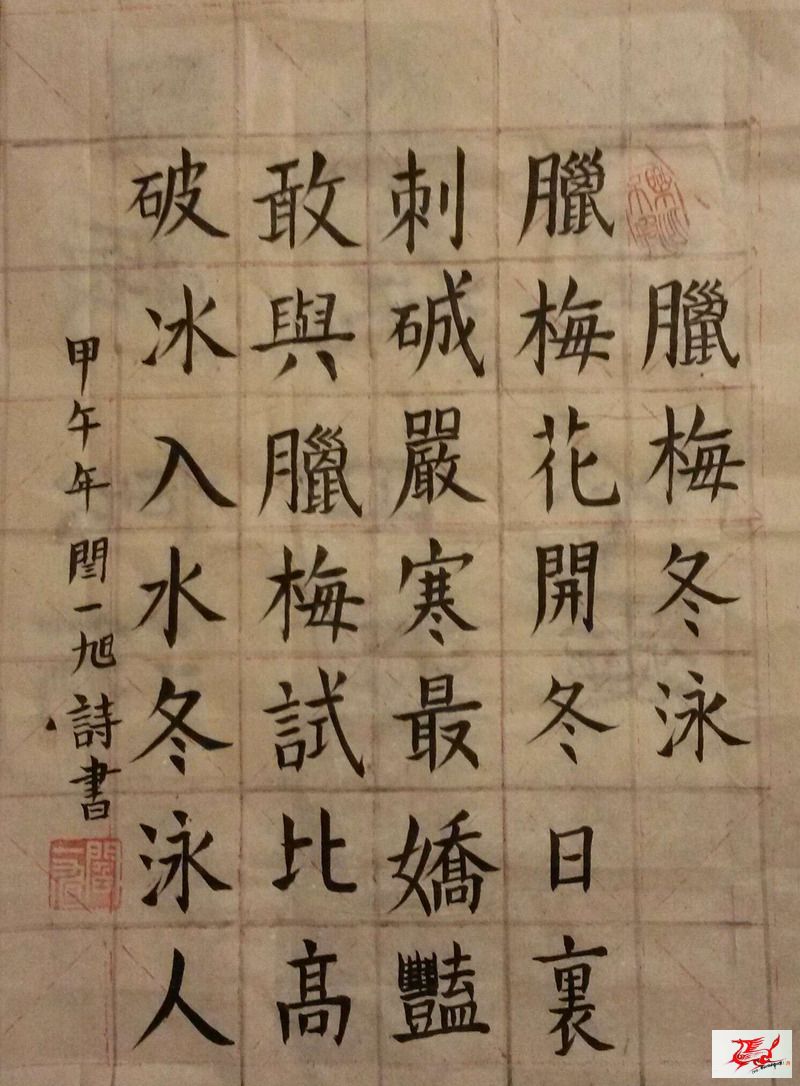 臘梅冬泳
臘梅花開冬日裏
刺碱嚴寒最嬌豔
敢與臘梅試比高
破冰入水冬泳人
甲午年閆一旭詩書